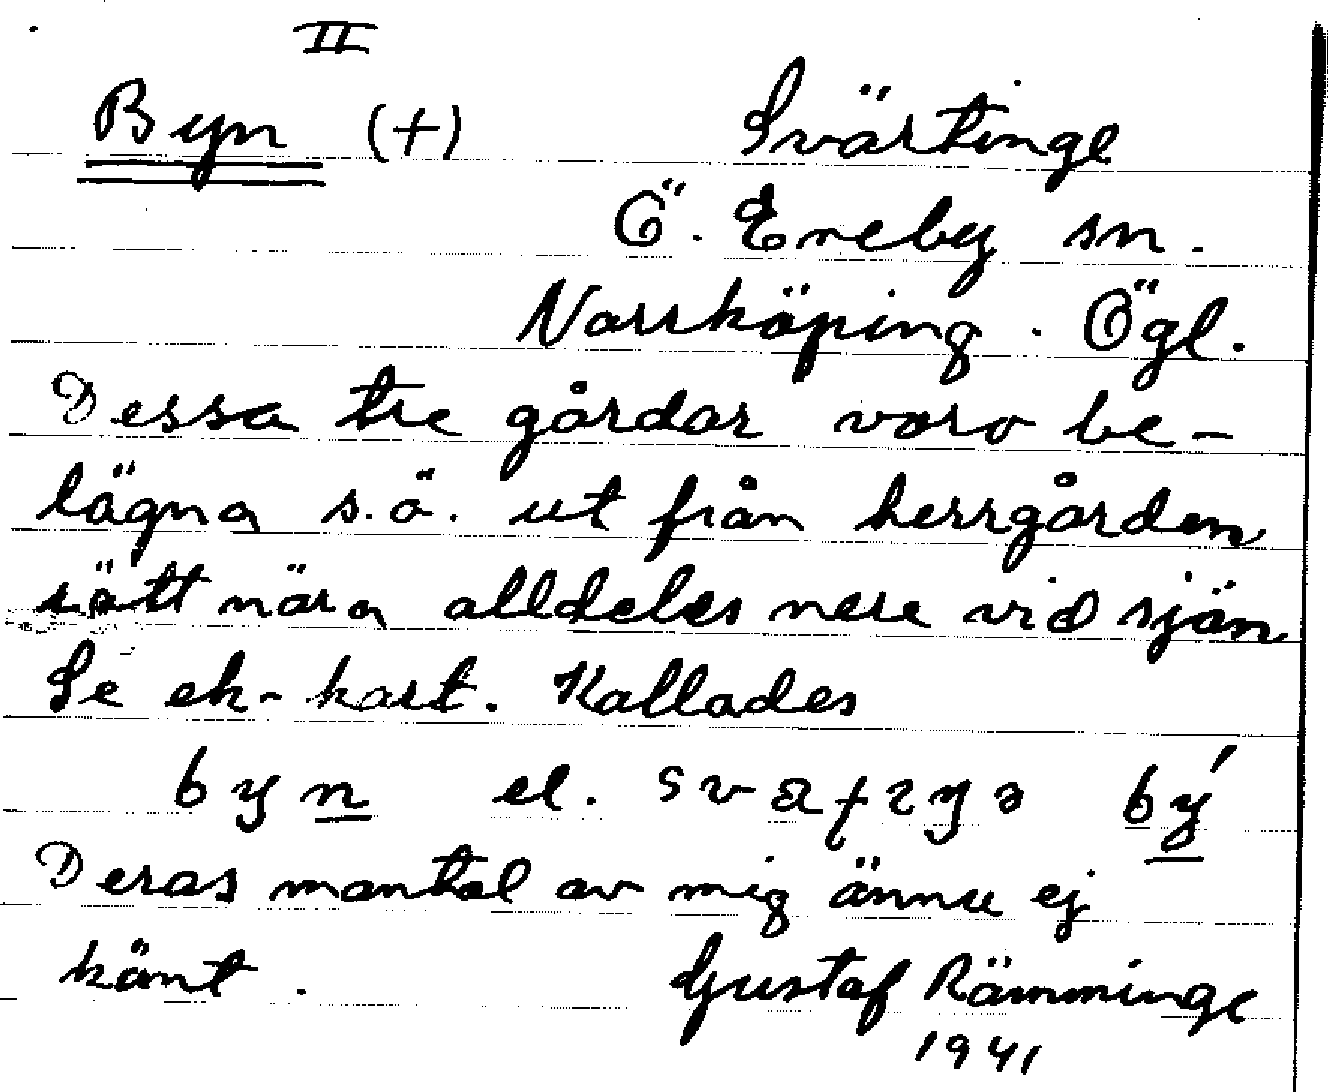 II
Byn (+) Svärtinge
Ö. Eneby sn.
Norrköping. Ögl.
Dessa tre gårdar voro be-
lägna s.ö. ut från herrgården
rätt nära alldeles nere vid sjön
Se ek-kart. Kallades
byn el. by
Deras mantal av mig ännu ej
känt. Gustaf Rämminge
1941